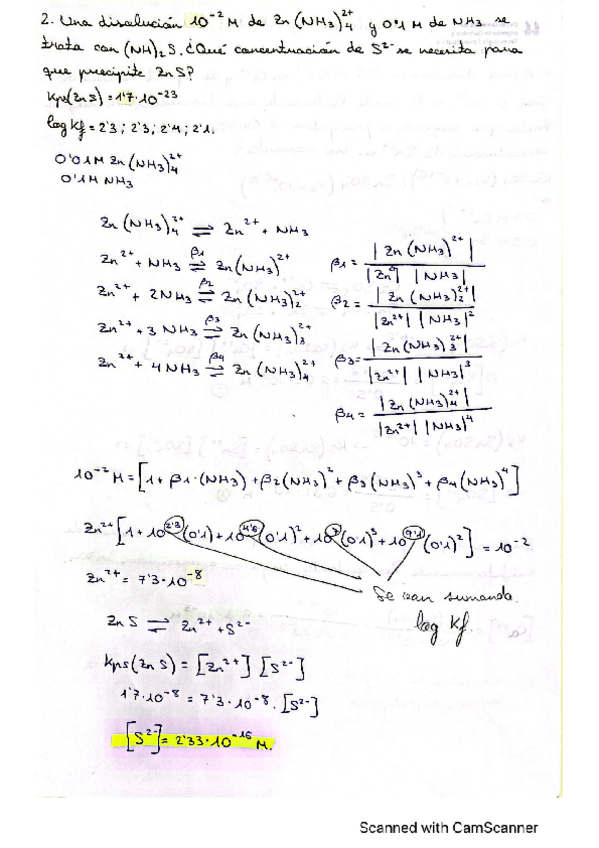 2. Una disolución 10⁻² M de Zn(NH₃)₄²⁺ y 0'1 M de NH₃ se
trata con (NH)₂S. ¿Qué concentración de S²⁻ se necesita para
que precipite ZnS?
Kps(ZnS) = 1'7·10⁻²³
log Kf = 2'3; 2'3; 2'4; 2'1.
0'01M Zn(NH₃)₄²⁺
0'1M NH₃
Zn(NH₃)₄²⁺ ⇌ Zn²⁺ + NH₃
Zn²⁺ + NH₃ ⇌ β1 Zn(NH₃)²⁺ β1 = |Zn(NH₃)²⁺| / |Zn²⁺| |NH₃|
Zn²⁺ + 2NH₃ ⇌ β2 Zn(NH₃)₂²⁺ β2 = |Zn(NH₃)₂²⁺| / |Zn²⁺| |NH₃|²
Zn²⁺ + 3NH₃ ⇌ β3 Zn(NH₃)₃²⁺ β3 = |Zn(NH₃)₃²⁺| / |Zn²⁺| |NH₃|³
Zn²⁺ + 4NH₃ ⇌ β4 Zn(NH₃)₄²⁺ β4 = |Zn(NH₃)₄²⁺| / |Zn²⁺| |NH₃|⁴
10⁻² M = [1 + β1·(NH₃) + β2(NH₃)² + β3(NH₃)³ + β4(NH₃)⁴]
Zn²⁺ [1 + 10^2'3 (0'1) + 10^4'6 (0'1)² + 10^7 (0'1)³ + 10^9'1 (0'1)²] = 10⁻²
Zn²⁺ = 7'3·10⁻⁸
Se van sumando.
log Kf
ZnS ⇌ Zn²⁺ + S²⁻
Kps(ZnS) = [Zn²⁺] [S²⁻]
1'7·10⁻⁸ = 7'3·10⁻⁸ · [S²⁻]
[S²⁻] = 2'33·10⁻¹⁶ M.
Scanned with CamScanner